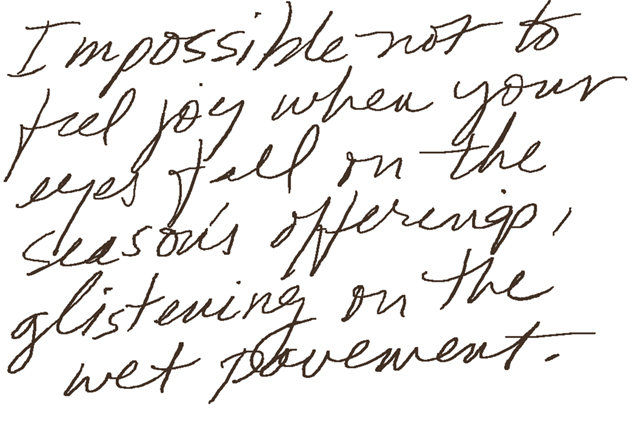 Impossible not to
feel joy when your
eyes fall on the
season's offerings,
glistening on the
wet pavement.